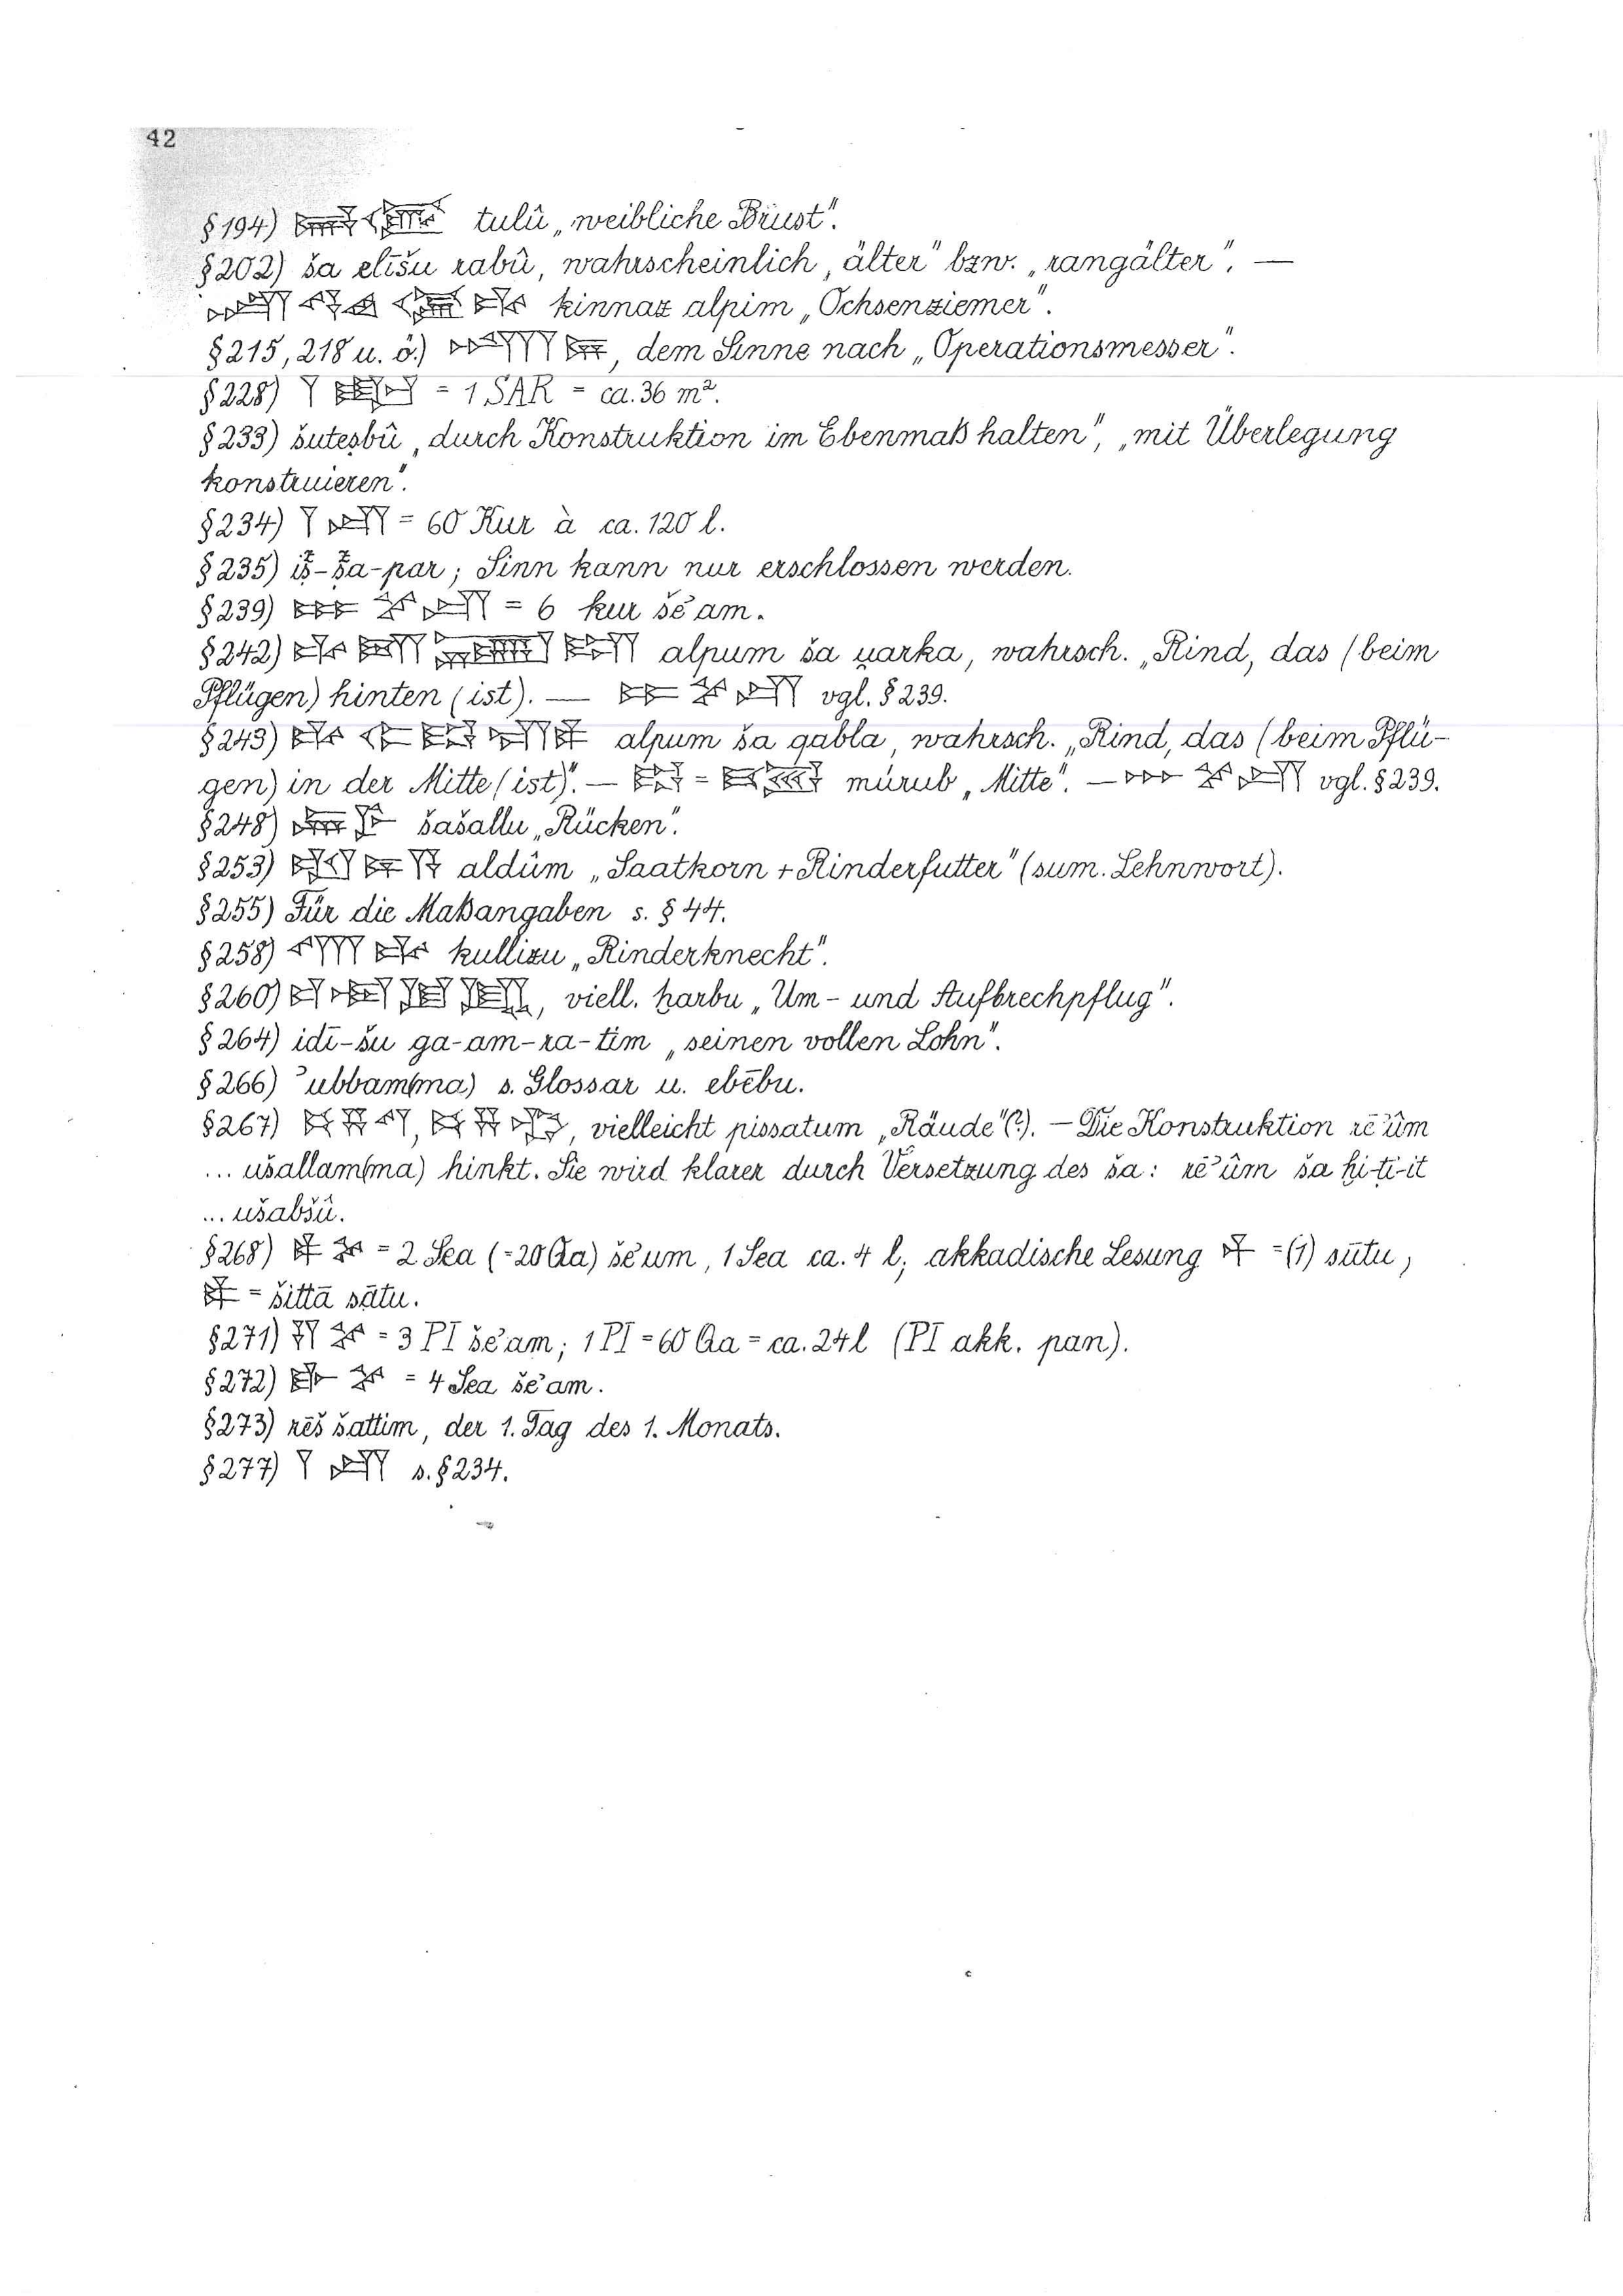 42
§194) tulû „weibliche Brust".
§202) ša elīšu rabû, wahrscheinlich „älter" bzw. „rangälter". —
kinnaz alpim „Ochsenziemer".
§215, 218 u. ö.) , dem Sinne nach „Operationsmesser".
§228) = 1 SAR = ca. 36 m².
§233) šuteṣbû „durch Konstruktion im Ebenmaß halten", „mit Überlegung
konstruieren".
§234) = 60 Kur à ca. 120 l.
§235) Sinn kann nur erschlossen werden.
§239) = 6 kur še'am.
§242) alpum ša u̯arka, wahrsch. „Rind, das (beim
Pflügen) hinten (ist). — vgl. §239.
§243) alpum ša qabla, wahrsch. „Rind, das (beim Pflü-
gen) in der Mitte (ist)". — = múrub „Mitte". — vgl. §239.
§248) šašallu „Rücken".
§253) aldûm „Saatkorn + Rinderfutter" (sum. Lehnwort).
§255) Für die Maßangaben s. §44.
§258) kullizu „Rinderknecht".
§260) , viell. ḫarbu „Um- und Aufbrechpflug".
§264) idī-šu ga-am-ra-tim „seinen vollen Lohn".
§266) ʾubbam(ma) s. Glossar u. ebēbu.
§267) , , vielleicht pissatum „Räude"(?). — Die Konstruktion rēʾûm
... ušallam(ma) hinkt. Sie wird klarer durch Versetzung des ša: rēʾûm ša ḫi-ṭi-it
... ušabšû.
§268) = 2 Sea (=20 Qa) šeʾum, 1 Sea ca. 4 l; akkadische Lesung = (1) sūtu,
= šittā sātu.
§271) = 3 PI šeʾam; 1 PI = 60 Qa = ca. 24 l (PI akk. pan).
§272) = 4 Sea šeʾam.
§273) rēš šattim, der 1. Tag des 1. Monats.
§277) s. §234.